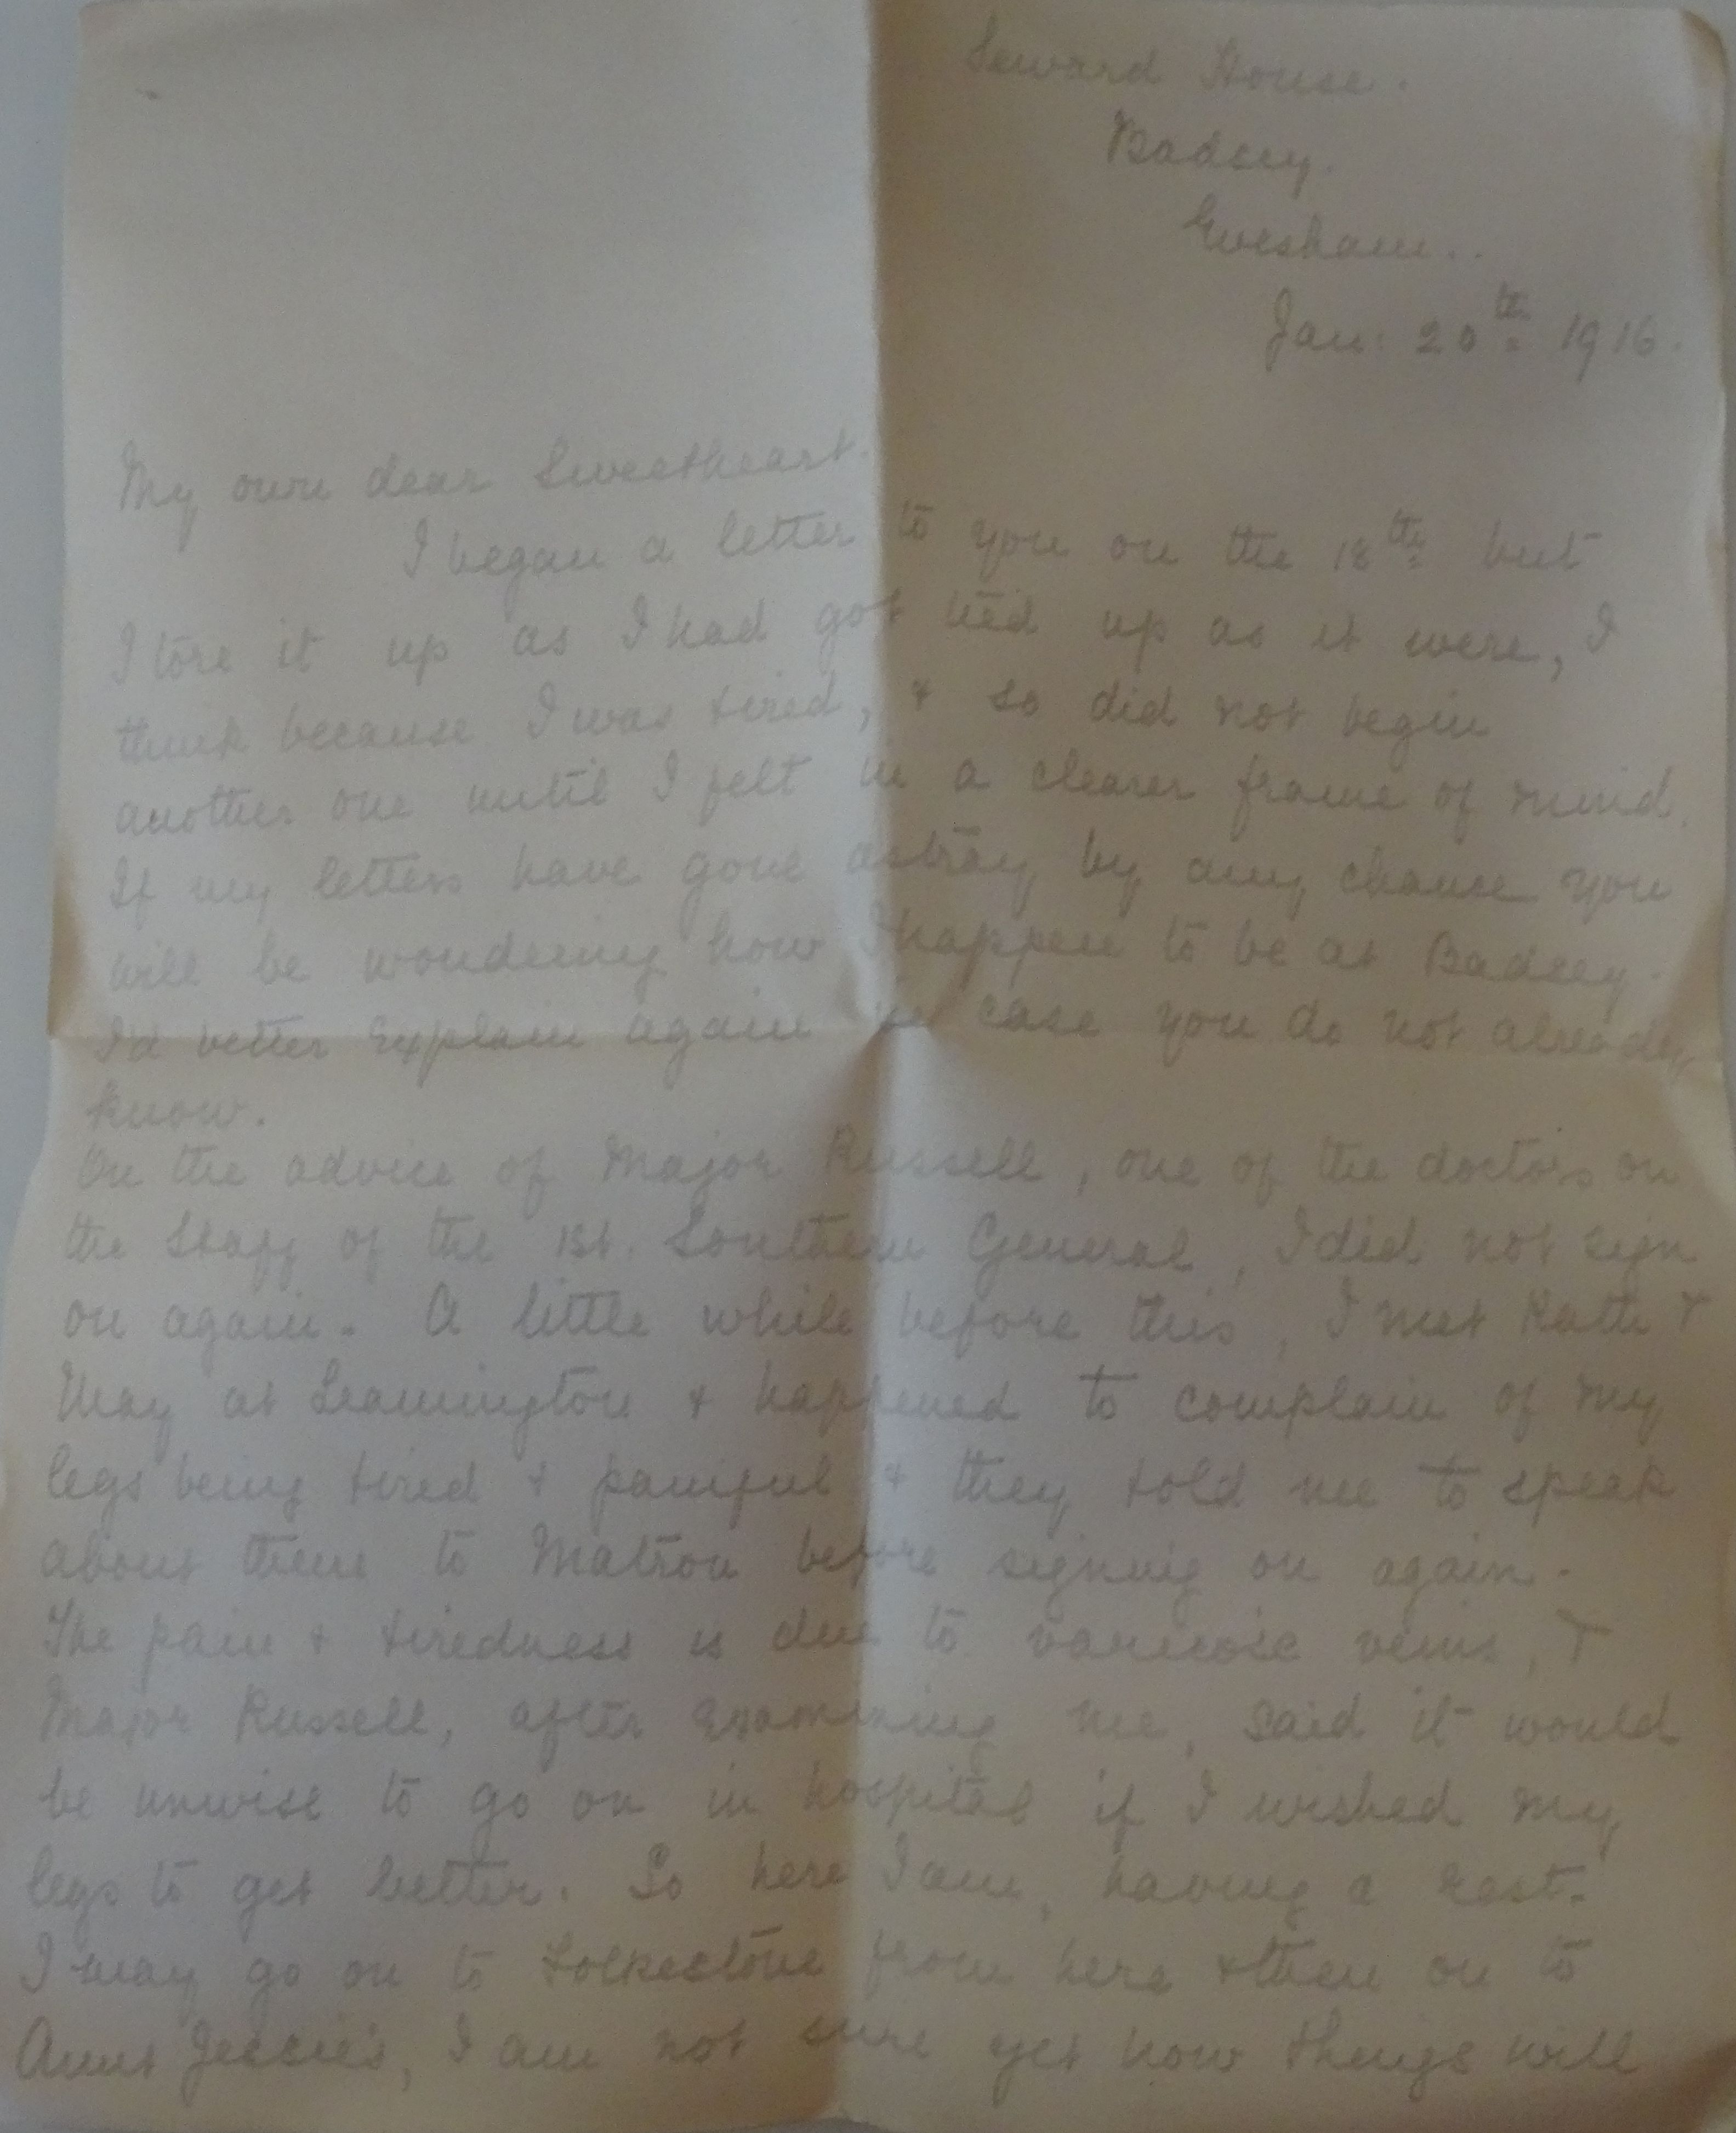 Seward House.
Badsey.
Evesham..
Jan: 20th 1916.
My own dear Sweetheart.
I began a letter to you on the 18th but
I tore it up as I had got tied up as it were, I
think because I was tired, & so did not begin
another one until I felt in a clearer frame of mind.
If my letters have gone astray by any chance you
will be wondering how I happen to be at Badsey.
I'd better explain again in case you do not already
know.
On the advice of Major Russell, one of the doctors on
the Staff of the 1st. Southern General, I did not sign
on again. A little while before this, I met &
May at Leamington & happened to complain of my
legs being tired & painful & they told me to speak
about them to Matron before signing on again.
The pain & tiredness is due to varicose veins, &
Major Russell, after examining me, said it would
be unwise to go on in hospital if I wished my
legs to get better. So here I am, having a rest.
I may go on to Folkestone from here & then on to
Aunt Jessie's, I am not sure yet how things will